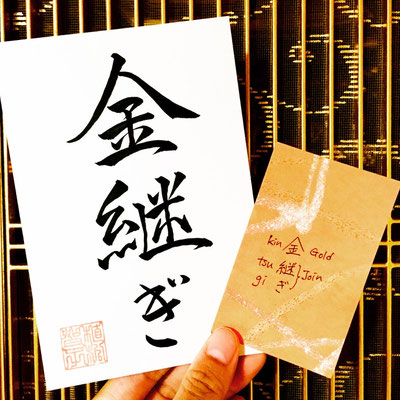 金継ぎ
kin 金 Gold
tsu 継 Join
gi ぎ